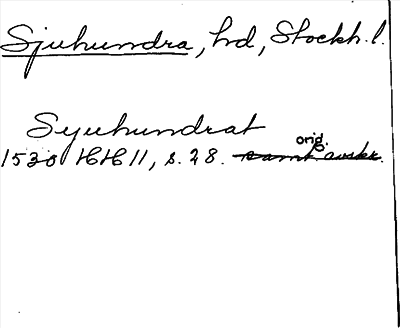 Sjuhundra, hd, Stockh. l.
Syuhundrat
orig.
1530 HH 11, s. 28. samt avskr.